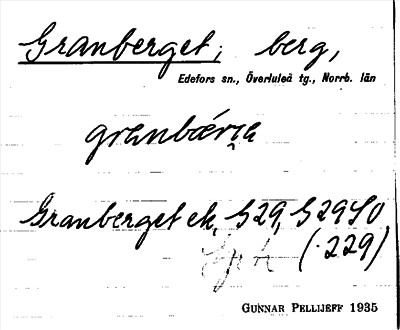 Granberget; berg,
Edefors sn., Överluleå tg., Norrb. län
granbærʒa
Granberget ek, S29, S29SO
(·229)
GUNNAR PELLIJEFF 1935